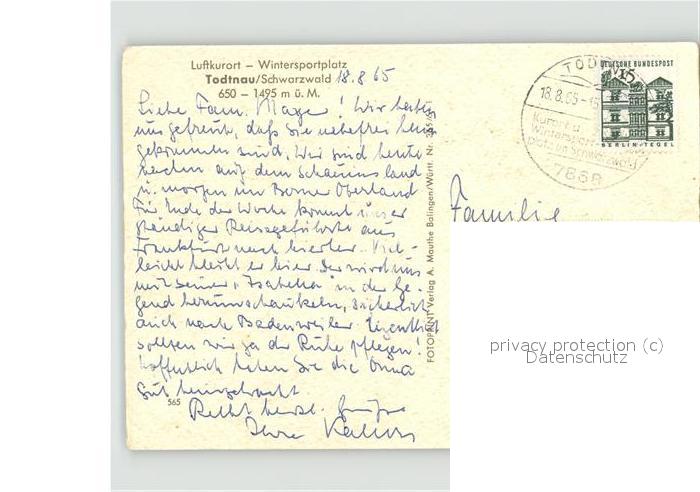 Luftkurort – Wintersportplatz
Todtnau/Schwarzwald 18.8.65
650 – 1495 m ü. M.
Liebe Fam. Mayer! Wir haben
uns gefreut, daß Sie
gekommen sind. Wir sind heute
auf dem Schauins land
u. morgen im Berner Oberland
Für Ende der Woche kommt unser
ständiger Reisegefährte aus
Frankfurt nach hierher. Viel-
leicht bleibt er hier. Der wird uns
mit seiner "Isabella" in der Ge-
gend herumschaukeln, sicherlich
auch nach Badenweiler. Eigentlich
sollten wir ja der Ruhe pflegen!
Hoffentlich haben Sie die Oma
gut heimgebracht.
Recht herzl. Grüße
Ihre
565
FOTOPRINT Verlag A. Mauthe Balingen/Württ. Nr.
TODTNAU
18.8.65-15
Kurort u.
Wintersport-
platz im Schwarzwald
7868
DEUTSCHE BUNDESPOST
15
BERLIN-TEGEL
Familie
privacy protection (c)
Datenschutz